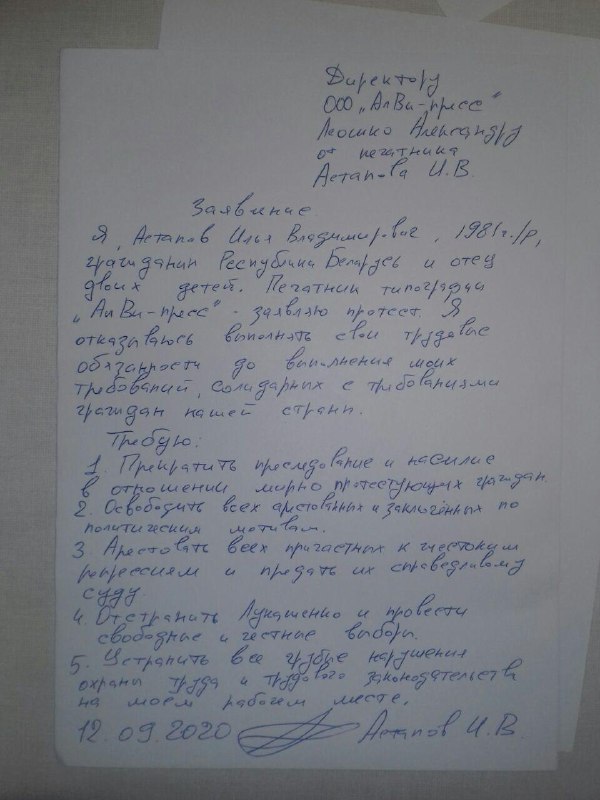 Директору
ООО „АлВи-пресс"
Леошко Александру
от печатника
Астапова И.В.
Заявление
Я, Астапов Илья Владимирович, 1981г./р,
гражданин Республики Беларусь и отец
двоих детей. Печатник типографии
„АлВи-пресс" - заявляю протест. Я
отказываюсь выполнять свои трудовые
обязанности до выполнения моих
требований, солидарных с требованиями
граждан нашей страны.
Требую:
1. Прекратить преследование и насилие
в отношении мирно протестующих граждан.
2. Освободить всех арестованных и заключённых по
политическим мотивам.
3. Арестовать всех причастных к жестоким
репрессиям и предать их справедливому
суду.
4. Отстранить Лукашенко и провести
свободные и честные выборы.
5. Устранить все грубые нарушения
охраны труда и трудового законодательства
на моём рабочем месте.
12.09.2020 Астапов И.В.